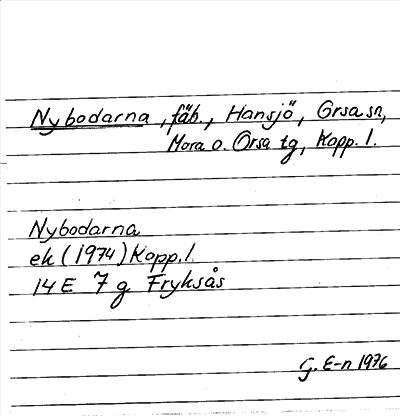 Nybodarna, fäb., Hansjö, Orsa sn,
Mora o. Orsa tg, Kopp. l.
Nybodarna
ek (1974) Kopp. l.
14 E 7 g Fryksås
G. E-n 1976